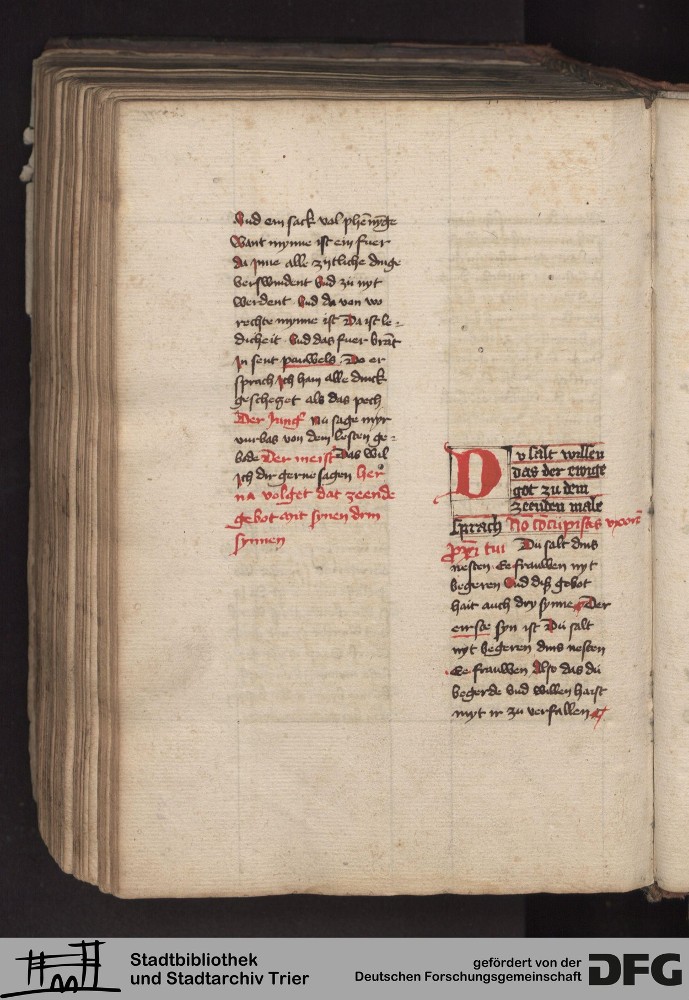 Vnd ein sack vol phēnyge
Want mynne ist ein fuer
da jnne alle zytliche dinge
verswindent Vnd zu nyt
werdent · Vnd da von wo
rechte mynne ist Da ist le-
dicheit · Vnd das fuer brāt
jn sent pauwels · Do er
sprach Jch han alle dinck
geschetzet als das pech
Der Jung Nu sage myr
vurbas von dem lesten ge-
bode Der meist Das wil
Jch dir gerne sagen her
na volget dat zeende
gebot mit synen drin
synnen
Du salt willen
das der ewige
got zu dem
zeenden male
sprach No cōcupistas vxorē
proxī tui Du salt dins
nesten Ee frauwen nyt
begeren Vnd diß gebot
hait auch dry synne Der
eirste syn ist Du salt
nyt begeren dins nesten
Ee frauwen Also das du
begerde vnd willen haist
myt ir zu verfallen
Stadtbibliothek
und Stadtarchiv Trier
gefördert von der
Deutschen Forschungsgemeinschaft
DFG